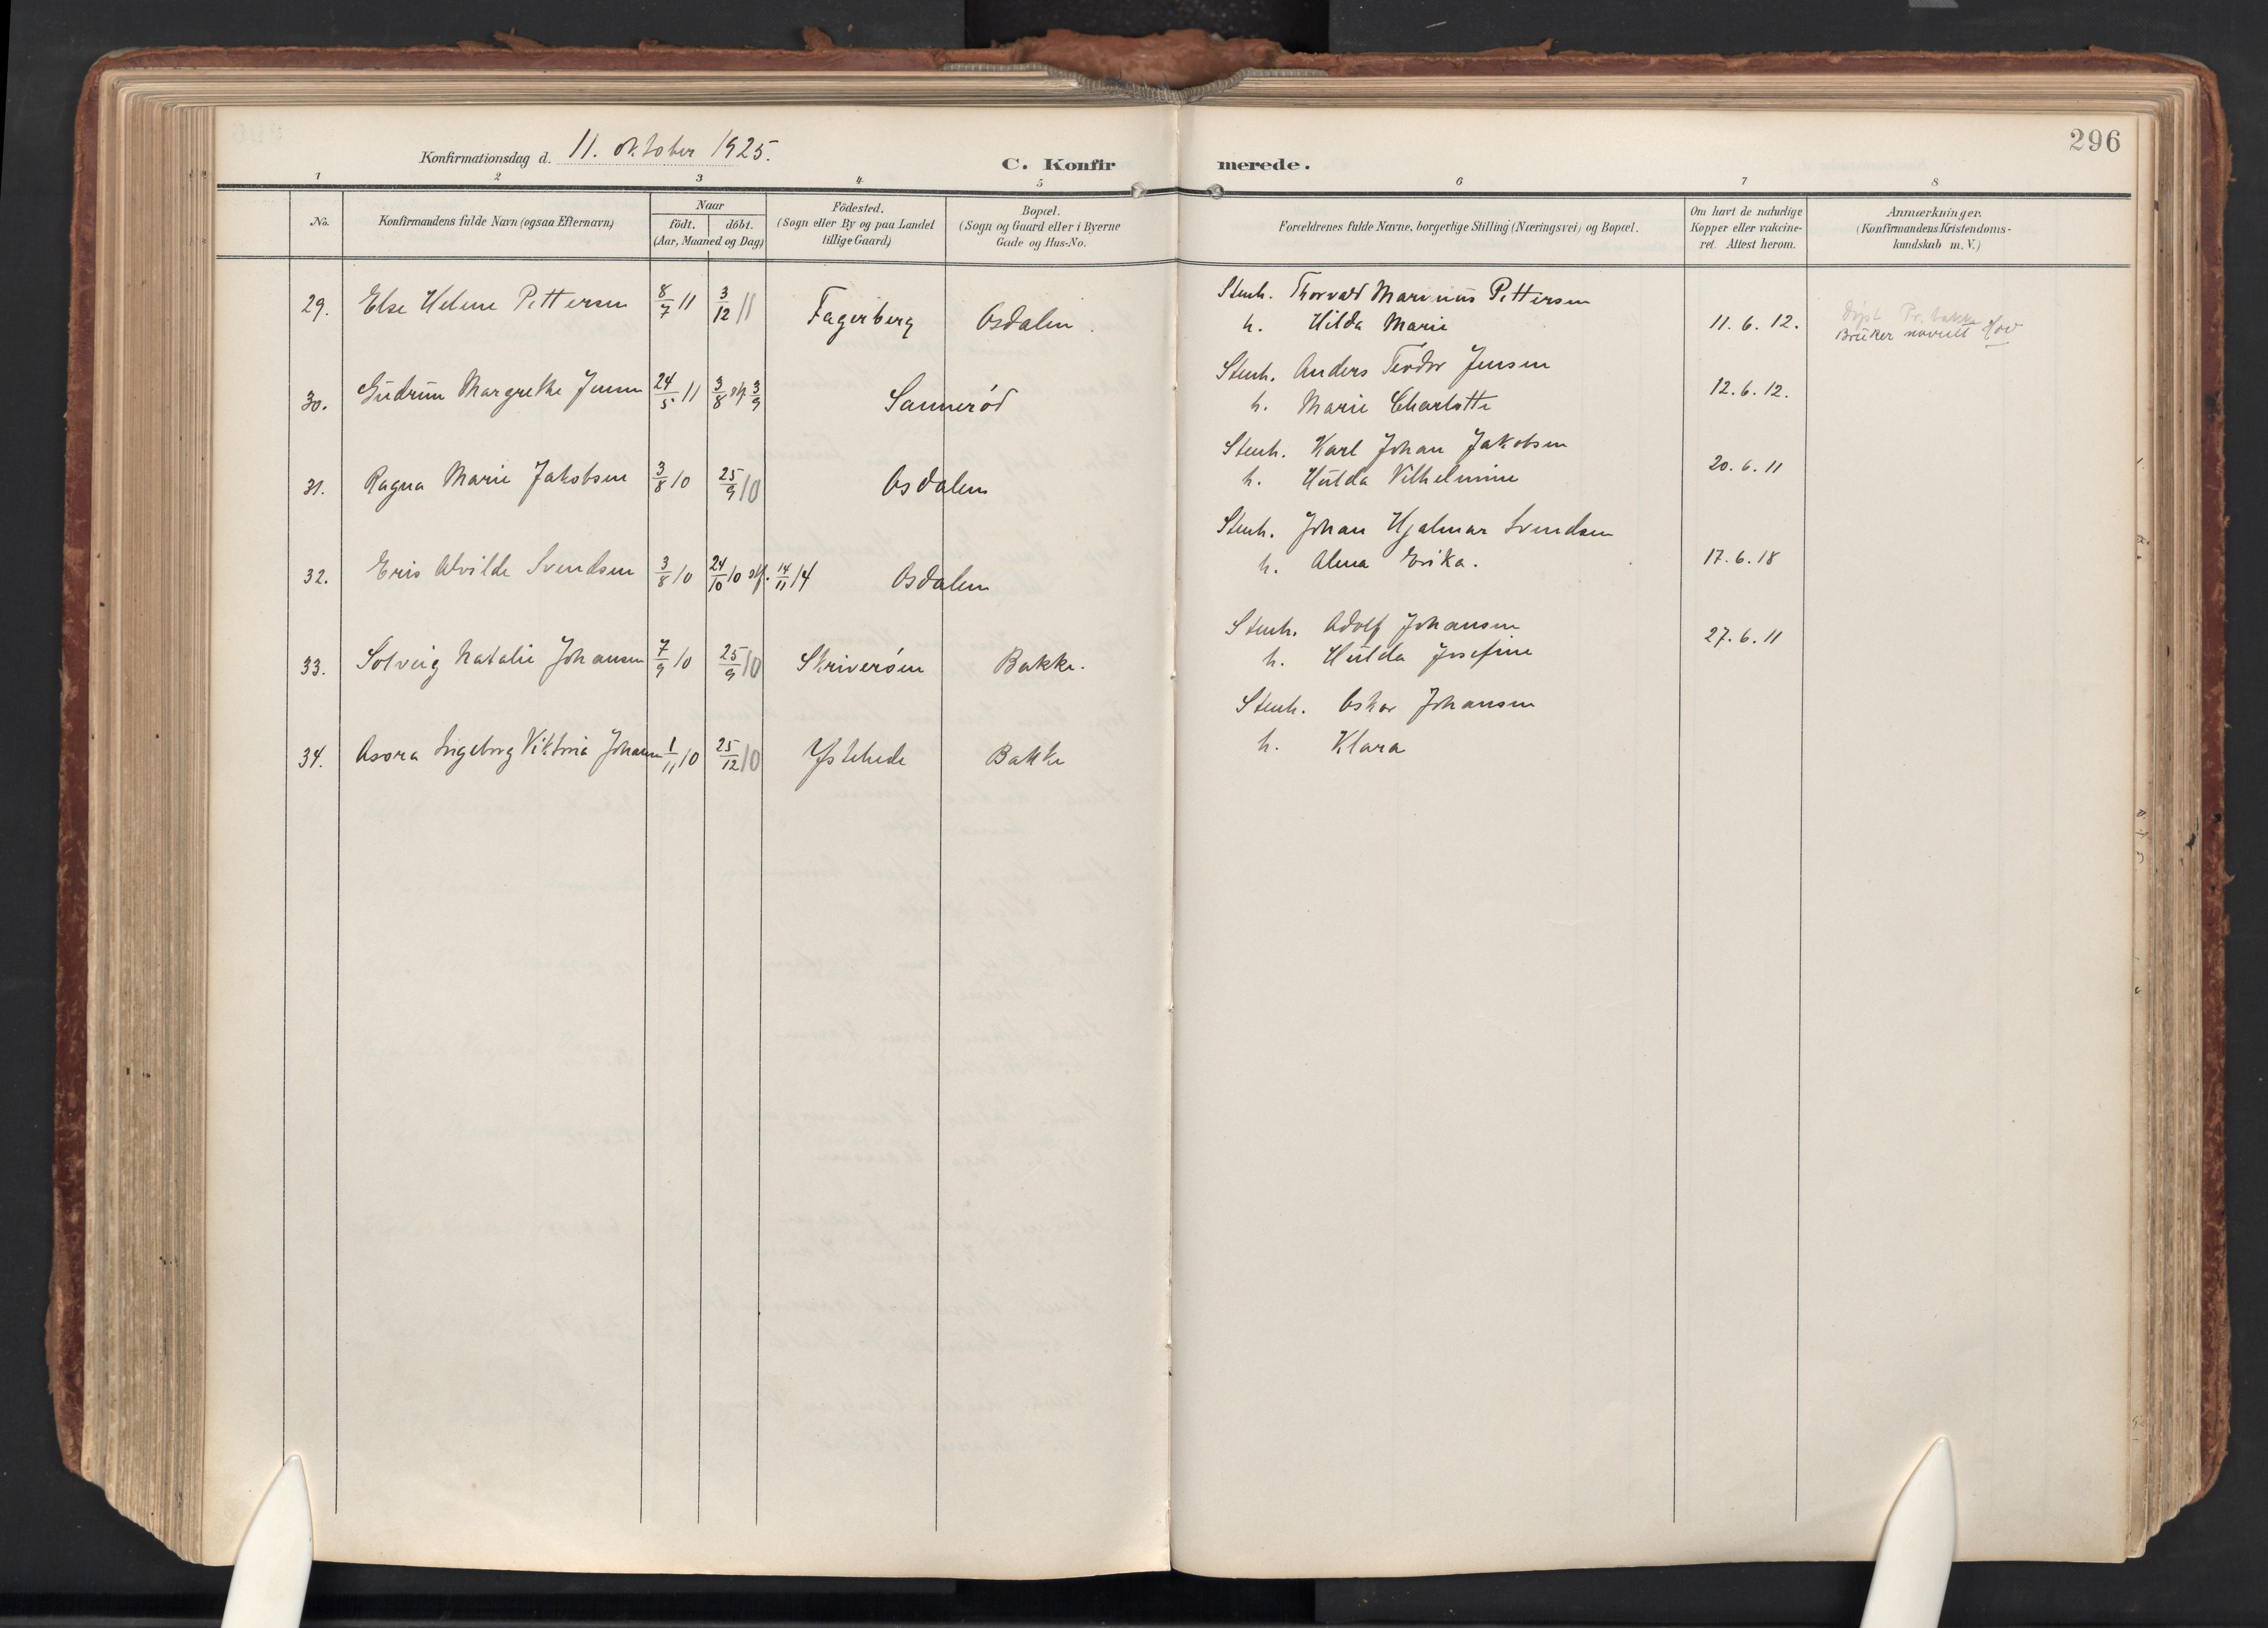 296
Konfirmationsdag d. 11. oktober 1925.
C. Konfirmerede.
1 2 3 4 5 6 7 8
No.
Konfirmandens fulde Navn (ogsaa Efternavn)
Naar
født. døbt.
(Aar, Maaned og Dag)
Födested.
(Sogn eller By og paa Landet
tillige Gaard)
Bopæl.
(Sogn og Gaard eller i Byerne
Gade og Hus-No.
Forældrenes fulde Navne, borgerlige Stilling (Næringsvei) og Bopæl.
Om havt de naturlige
Kopper eller vakcine-
ret. Attest herom.
Anmærkninger.
(Konfirmandens Kristendoms-
kundskab m. V.)
29. Else Helene Pettersen 8/7 11 3/12 11 Fagerberg Osdalen. Stenh. Thorvald Marinius Pettersen
h. Hilda Marie 11. 6. 12.
Bruker navnet Hov
30. Gudrun Margrethe Jensen 24/5 11 3/8 stf 3/9 Sannerød Stenh. Anders Teodor Jensen
h. Marie Charlotte 12. 6. 12.
31. Ragna Marie Jakobsen 3/8 10 25/9 10 Osdalen Stenh. Karl Johan Jakobsen
h. Hulda Vilhelmine 20. 6. 11
32. Eris Alvilde Svendsen 3/8 10 24/10 10 stf. 14/11 14 Osdalen Stenh. Johan Hjalmar Svendsen
h. Alma Erika. 17. 6. 18
33. Solveig Natalie Johansen 7/9 10 25/9 10 Skriverøen Bakke. Stenh. Adolf Johansen
h. Hulda Josefine 27. 6. 11
34. Asora Ingeborg Viktoria Johansen 1/11 10 25/12 10 Ystehede Bakke Stenh. Oskar Johansen
h. Klara